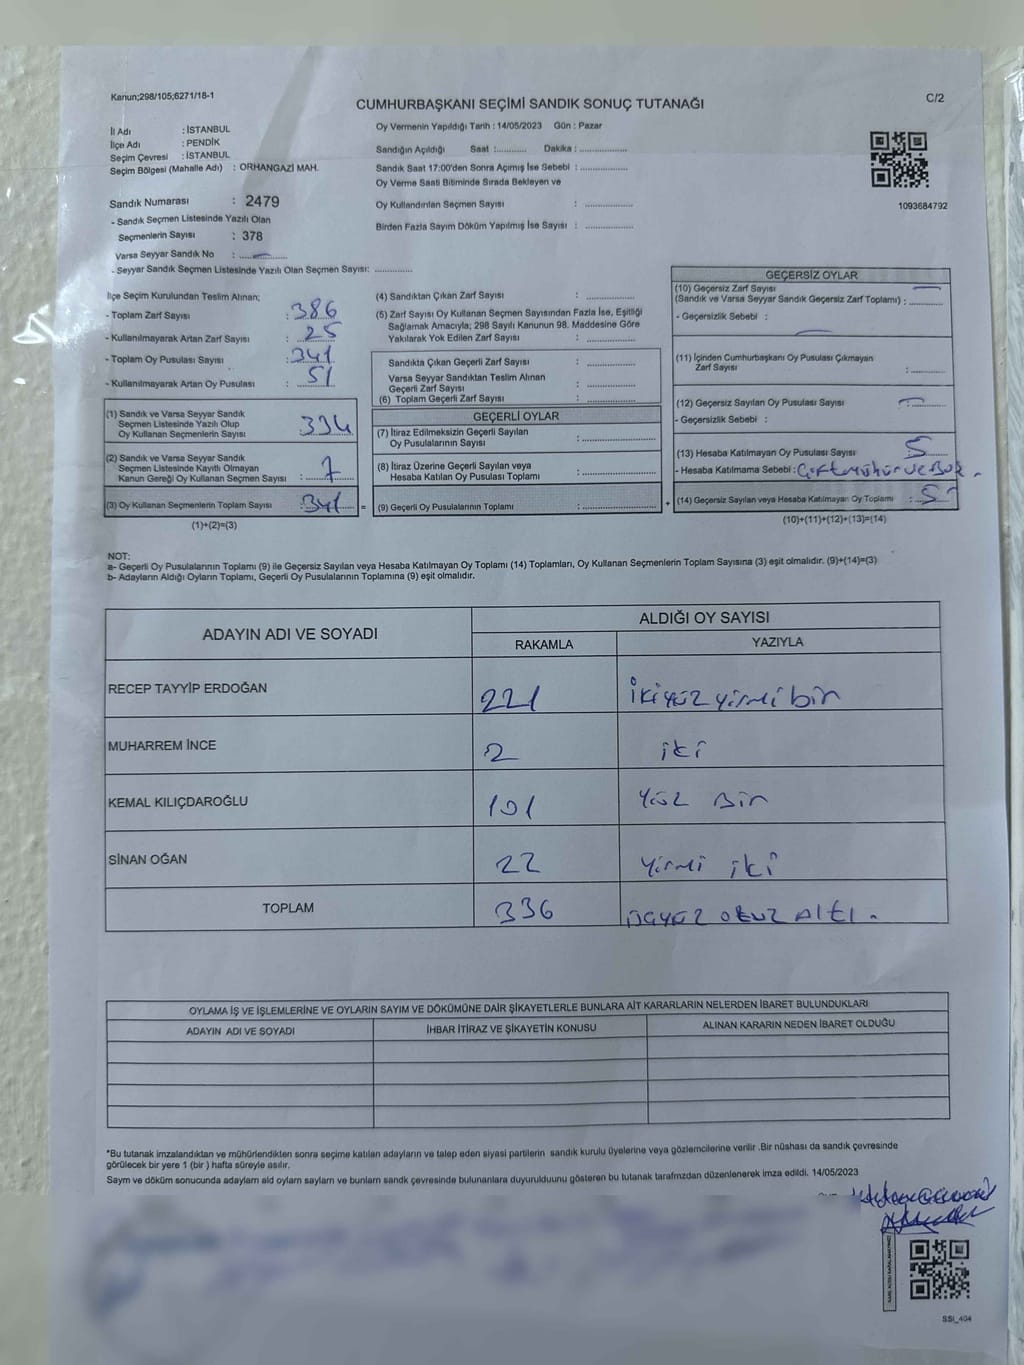 Kanun;298/105;6271/18-1
C/2
CUMHURBAŞKANI SEÇİMİ SANDIK SONUÇ TUTANAĞI
İl Adı : İSTANBUL
İlçe Adı : PENDİK
Seçim Çevresi : İSTANBUL
Seçim Bölgesi (Mahalle Adı) : ORHANGAZİ MAH.
Oy Vermenin Yapıldığı Tarih : 14/05/2023 Gün : Pazar
Sandığın Açıldığı Saat :........... Dakika : ................
Sandık Saat 17:00'den Sonra Açımış İse Sebebi : ................
Oy Verme Saati Bitiminde Sırada Bekleyen ve
Oy Kullandırılan Seçmen Sayısı : ................
Birden Fazla Sayım Döküm Yapılmış İse Sayısı : ................
1093684792
Sandık Numarası : 2479
- Sandık Seçmen Listesinde Yazılı Olan
Seçmenlerin Sayısı : 378
Varsa Seyyar Sandık No : ................
- Seyyar Sandık Seçmen Listesinde Yazılı Olan Seçmen Sayısı: .............
İlçe Seçim Kurulundan Teslim Alınan;
- Toplam Zarf Sayısı : 386
- Kullanılmayarak Artan Zarf Sayısı : 25
- Toplam Oy Pusulası Sayısı : 341
- Kullanılmayarak Artan Oy Pusulası : 51
(1) Sandık ve Varsa Seyyar Sandık
Seçmen Listesinde Yazılı Olup
Oy Kullanan Seçmenlerin Sayısı 334
(2) Sandık ve Varsa Seyyar Sandık
Seçmen Listesinde Kayıtlı Olmayan
Kanun Gereği Oy Kullanan Seçmen Sayısı : 7
(3) Oy Kullanan Seçmenlerin Toplam Sayısı : 341 =
(1)+(2)=(3)
(4) Sandıktan Çıkan Zarf Sayısı : ................
(5) Zarf Sayısı Oy Kullanan Seçmen Sayısından Fazla İse, Eşitliği
Sağlamak Amacıyla; 298 Sayılı Kanunun 98. Maddesine Göre
Yakılarak Yok Edilen Zarf Sayısı : ................
Sandıkta Çıkan Geçerli Zarf Sayısı : ................
Varsa Seyyar Sandıktan Teslim Alınan
Geçerli Zarf Sayısı : ................
(6) Toplam Geçerli Zarf Sayısı : ................
GEÇERLİ OYLAR
(7) İtiraz Edilmeksizin Geçerli Sayılan
Oy Pusulalarının Sayısı : ................
(8) İtiraz Üzerine Geçerli Sayılan veya
Hesaba Katılan Oy Pusulası Toplamı : ................
(9) Geçerli Oy Pusulalarının Toplamı : ................ +
GEÇERSİZ OYLAR
(10) Geçersiz Zarf Sayısı
(Sandık ve Varsa Seyyar Sandık Geçersiz Zarf Toplamı) : ............
- Geçersizlik Sebebi :
(11) İçinden Cumhurbaşkanı Oy Pusulası Çıkmayan
Zarf Sayısı : ............
(12) Geçersiz Sayılan Oy Pusulası Sayısı : ............
- Geçersizlik Sebebi :
(13) Hesaba Katılmayan Oy Pusulası Sayısı 5
- Hesaba Katılmama Sebebi : Çift mühür ve
(14) Geçersiz Sayılan veya Hesaba Katılmayan Oy Toplamı : 5
(10)+(11)+(12)+(13)=(14)
NOT:
a- Geçerli Oy Pusulalarının Toplamı (9) ile Geçersiz Sayılan veya Hesaba Katılmayan Oy Toplamı (14) Toplamları, Oy Kullanan Seçmenlerin Toplam Sayısına (3) eşit olmalıdır. (9)+(14)=(3)
b- Adayların Aldığı Oyların Toplamı, Geçerli Oy Pusulalarının Toplamına (9) eşit olmalıdır.
ADAYIN ADI VE SOYADI ALDIĞI OY SAYISI
RAKAMLA YAZIYLA
RECEP TAYYİP ERDOĞAN 221 ikiyüz yirmi bir
MUHARREM İNCE 2 iki
KEMAL KILIÇDAROĞLU 101 Yüz Bir
SİNAN OĞAN 22 Yirmi iki
TOPLAM 336 üçyüz otuz Altı.
OYLAMA İŞ VE İŞLEMLERİNE VE OYLARIN SAYIM VE DÖKÜMÜNE DAİR ŞİKAYETLERLE BUNLARA AİT KARARLARIN NELERDEN İBARET BULUNDUKLARI
ADAYIN ADI VE SOYADI İHBAR İTİRAZ VE ŞİKAYETİN KONUSU ALINAN KARARIN NEDEN İBARET OLDUĞU
*Bu tutanak imzalandıktan ve mühürlendikten sonra seçime katılan adayların ve talep eden siyasi partilerin sandık kurulu üyelerine veya gözlemcilerine verilir .Bir nüshası da sandık çevresinde
görülecek bir yere 1 (bir ) hafta süreyle asılır.
Sayım ve döküm sonucunda adayların ald oyların sayıları ve bunların sandk çevresinde bulunanlara duyurulduunu gösteren bu tutanak tarafmzdan düzenlenerek imza edildi. 14/05/2023
SSI_404